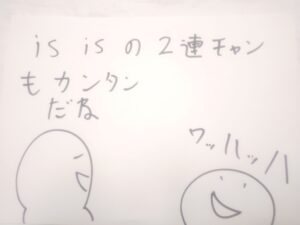 is is の 2連チャン
もカンタン
だね
ワッハッハ